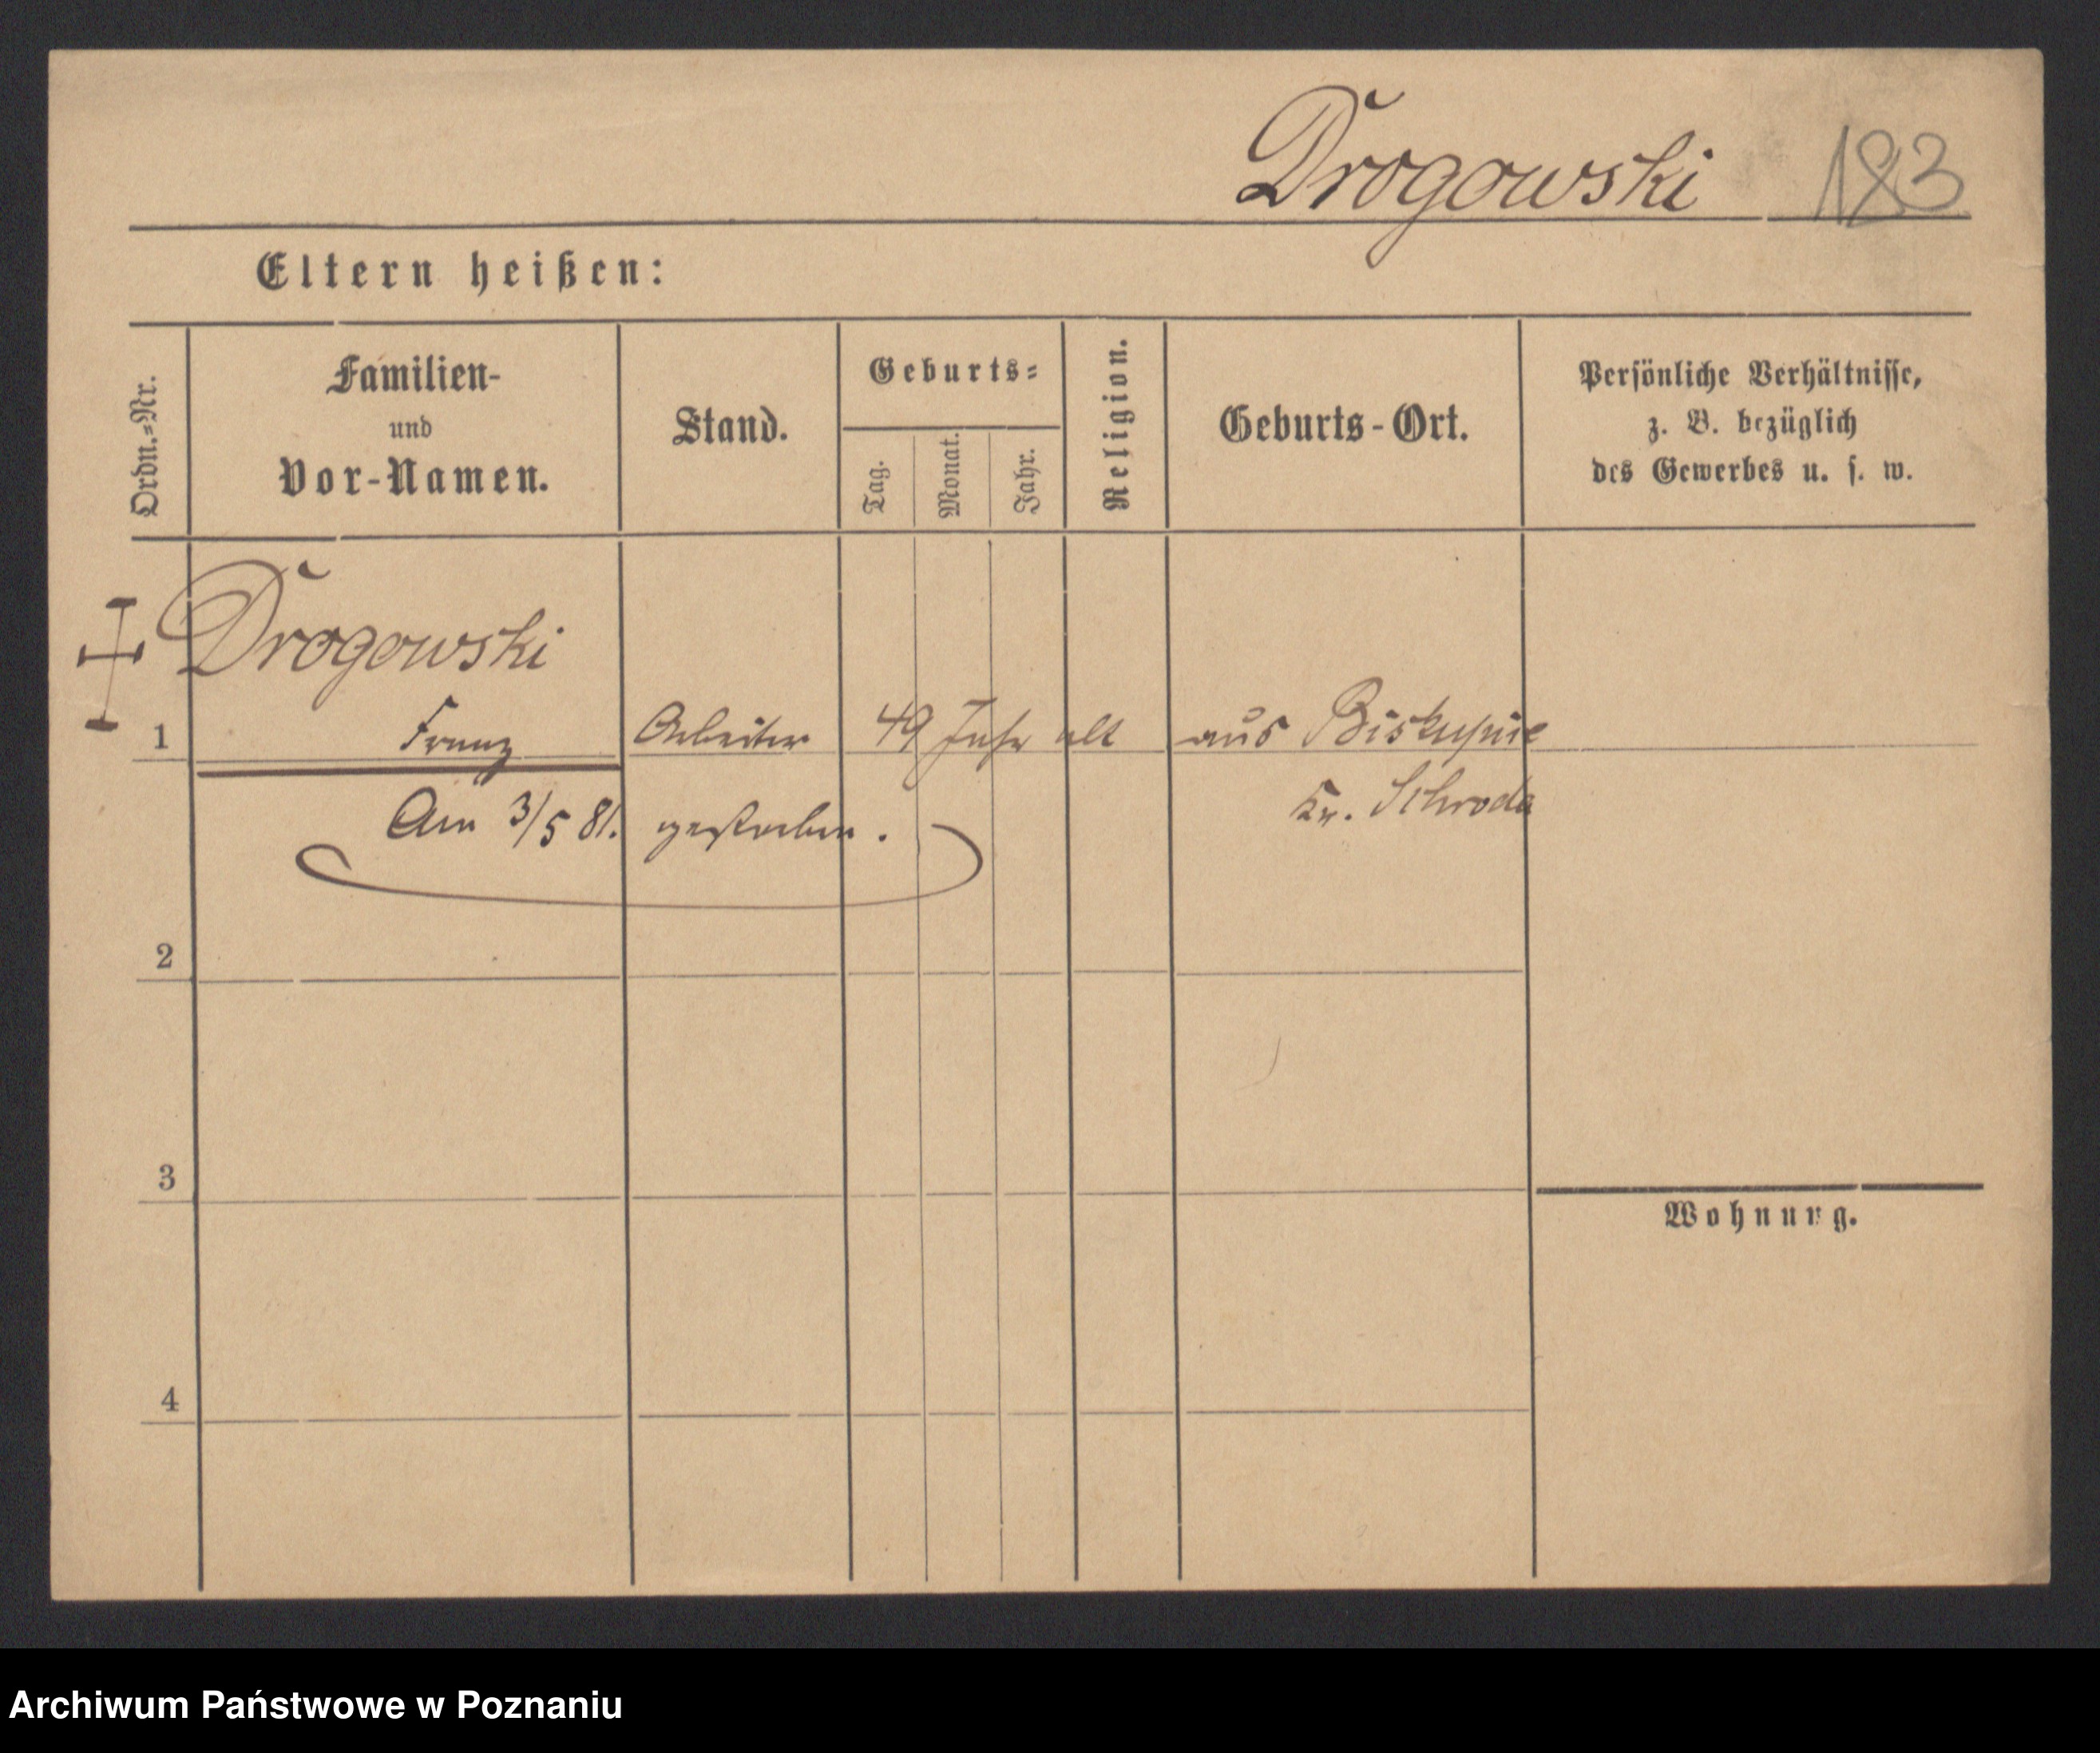 Drogowski 183
Eltern heißen:
Ordn.=Nr.
Familien-
und
Vor-Namen.
Stand.
Geburts=
Tag.
Monat.
Jahr.
Religion.
Geburts-Ort.
Persönliche Verhältnisse,
z. B. bezüglich
des Gewerbes u. s. w.
Drogowski
1 Franz Arbeiter 49 Jahr alt aus Biskupice
Kr. Schroda
Am 3/5 81. gestorben.
2
3
Wohnung.
4
Archiwum Państwowe w Poznaniu